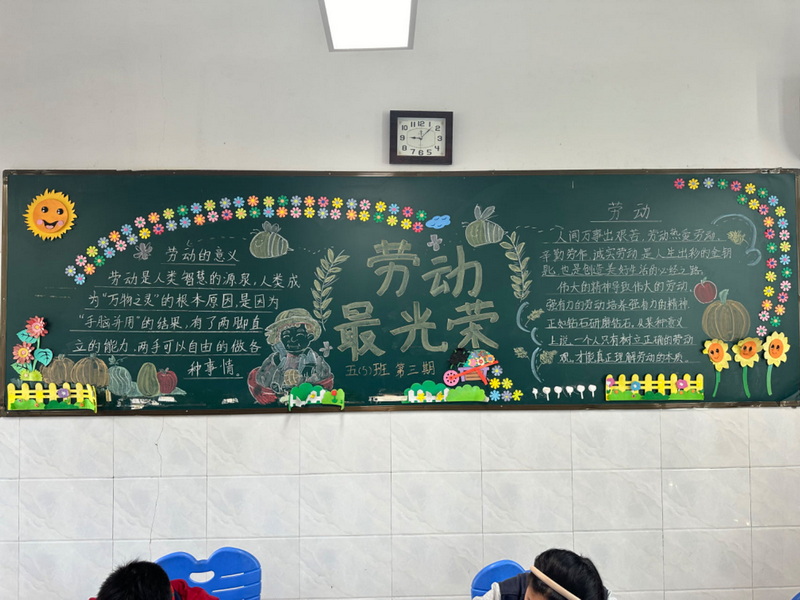 劳动的意义
劳动是人类智慧的源泉,人类成
为“万物之灵”的根本原因,是因为
“手脑并用”的结果,有了两脚直
立的能力,两手可以自由的做各
种事情。
劳动
最光荣
五(5)班 第三期
劳动
人间万事出艰苦,劳动
辛勤劳作,诚实劳动,是人生出彩的金钥
匙,也是创造美好生活的必经之路。
伟大的精神导致伟大的劳动,
强有力的劳动培养强有力的精神,
正如钻石研磨钻石,从某种意义
上说,一个人只有树立正确的劳动
观,才能真正理解劳动的本质。
12
1
2
3
4
5
6
7
8
9
10
11